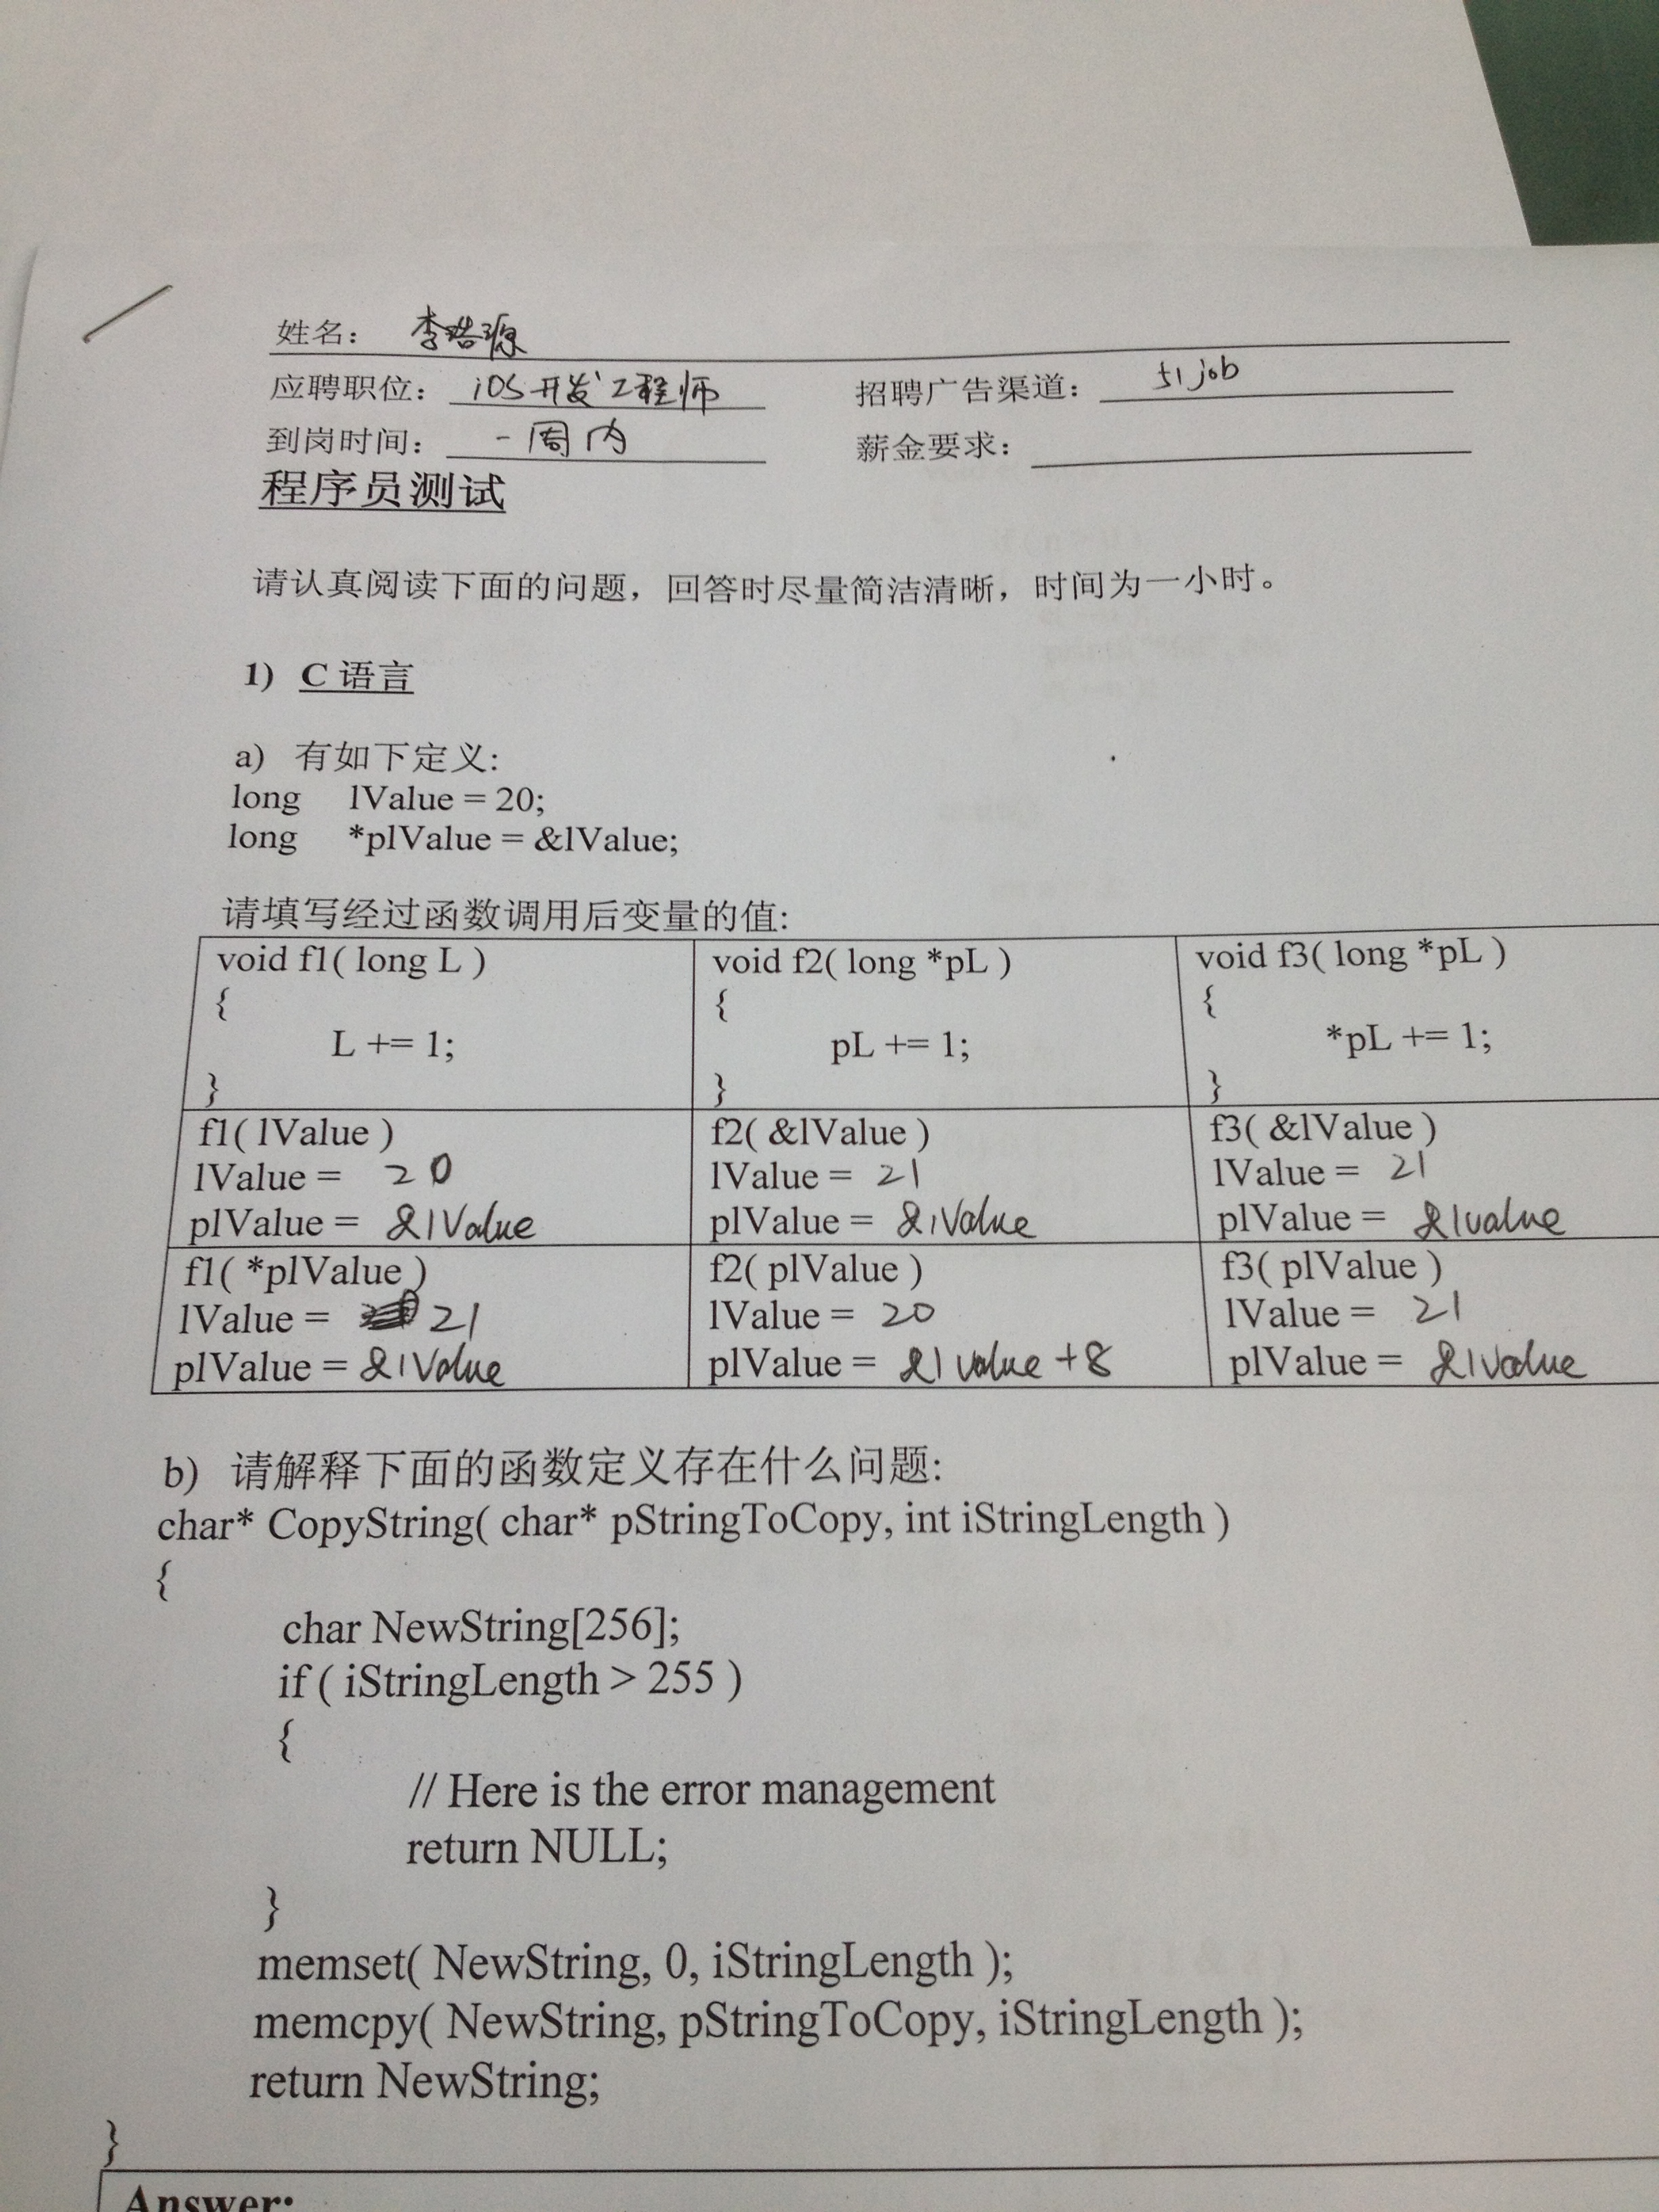 姓名： 李浩源
应聘职位： iOS开发工程师 招聘广告渠道： 51job
到岗时间： 一周内 薪金要求：
程序员测试
请认真阅读下面的问题，回答时尽量简洁清晰，时间为一小时。
1) C 语言
a) 有如下定义:
long lValue = 20;
long *plValue = &lValue;
请填写经过函数调用后变量的值:
void f1( long L ) void f2( long *pL ) void f3( long *pL )
{ { {
L += 1; pL += 1; *pL += 1;
} } }
f1( lValue ) f2( &lValue ) f3( &lValue )
lValue = 20 lValue = 21 lValue = 21
plValue = &lValue plValue = &lValue plValue = &lvalue
f1( *plValue ) f2( plValue ) f3( plValue )
lValue = 21 lValue = 20 lValue = 21
plValue = &lValue plValue = &lvalue +8 plValue = &lvalue
b) 请解释下面的函数定义存在什么问题:
char* CopyString( char* pStringToCopy, int iStringLength )
{
char NewString[256];
if ( iStringLength > 255 )
{
// Here is the error management
return NULL;
}
memset( NewString, 0, iStringLength );
memcpy( NewString, pStringToCopy, iStringLength );
return NewString;
}
Answer: